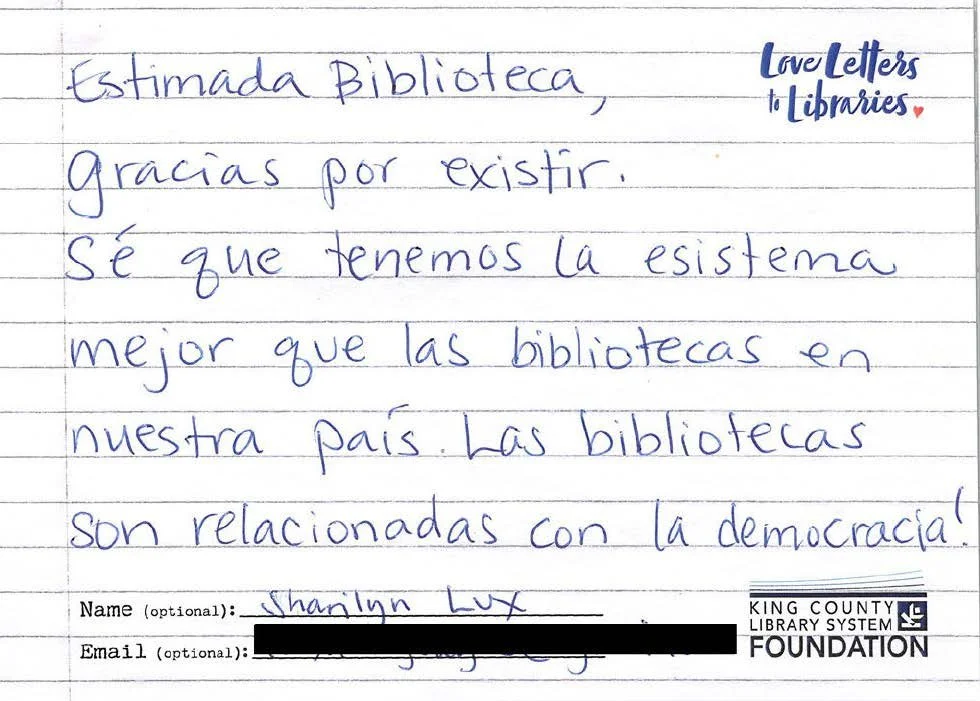 Love Letters
to Libraries
Estimada Biblioteca,
gracias por existir.
Sé que tenemos la esistema
mejor que las bibliotecas en
nuestra país. Las bibliotecas
son relacionadas con la democracia!
Name (optional): Sharilyn Lux
Email (optional):
KING COUNTY
LIBRARY SYSTEM
FOUNDATION